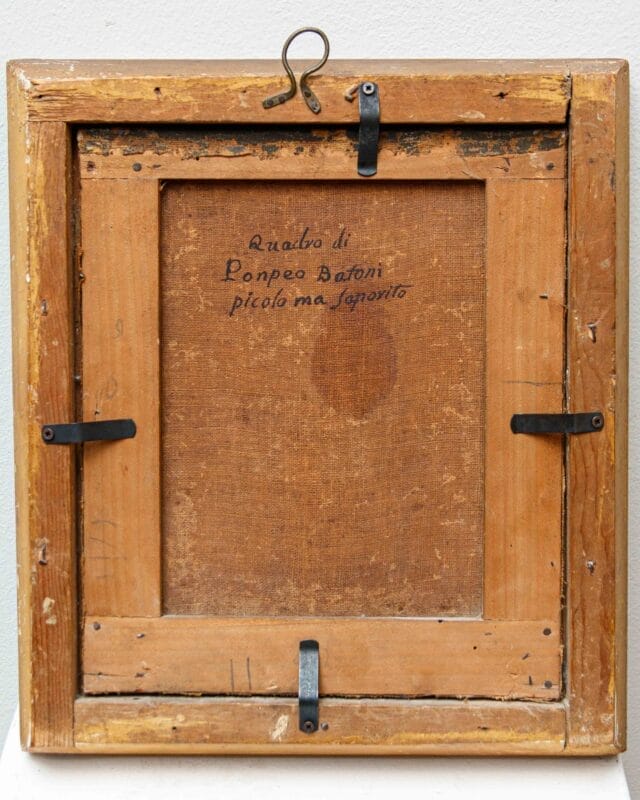 Quadro di
Ponpeo Batoni
picolo ma saporito